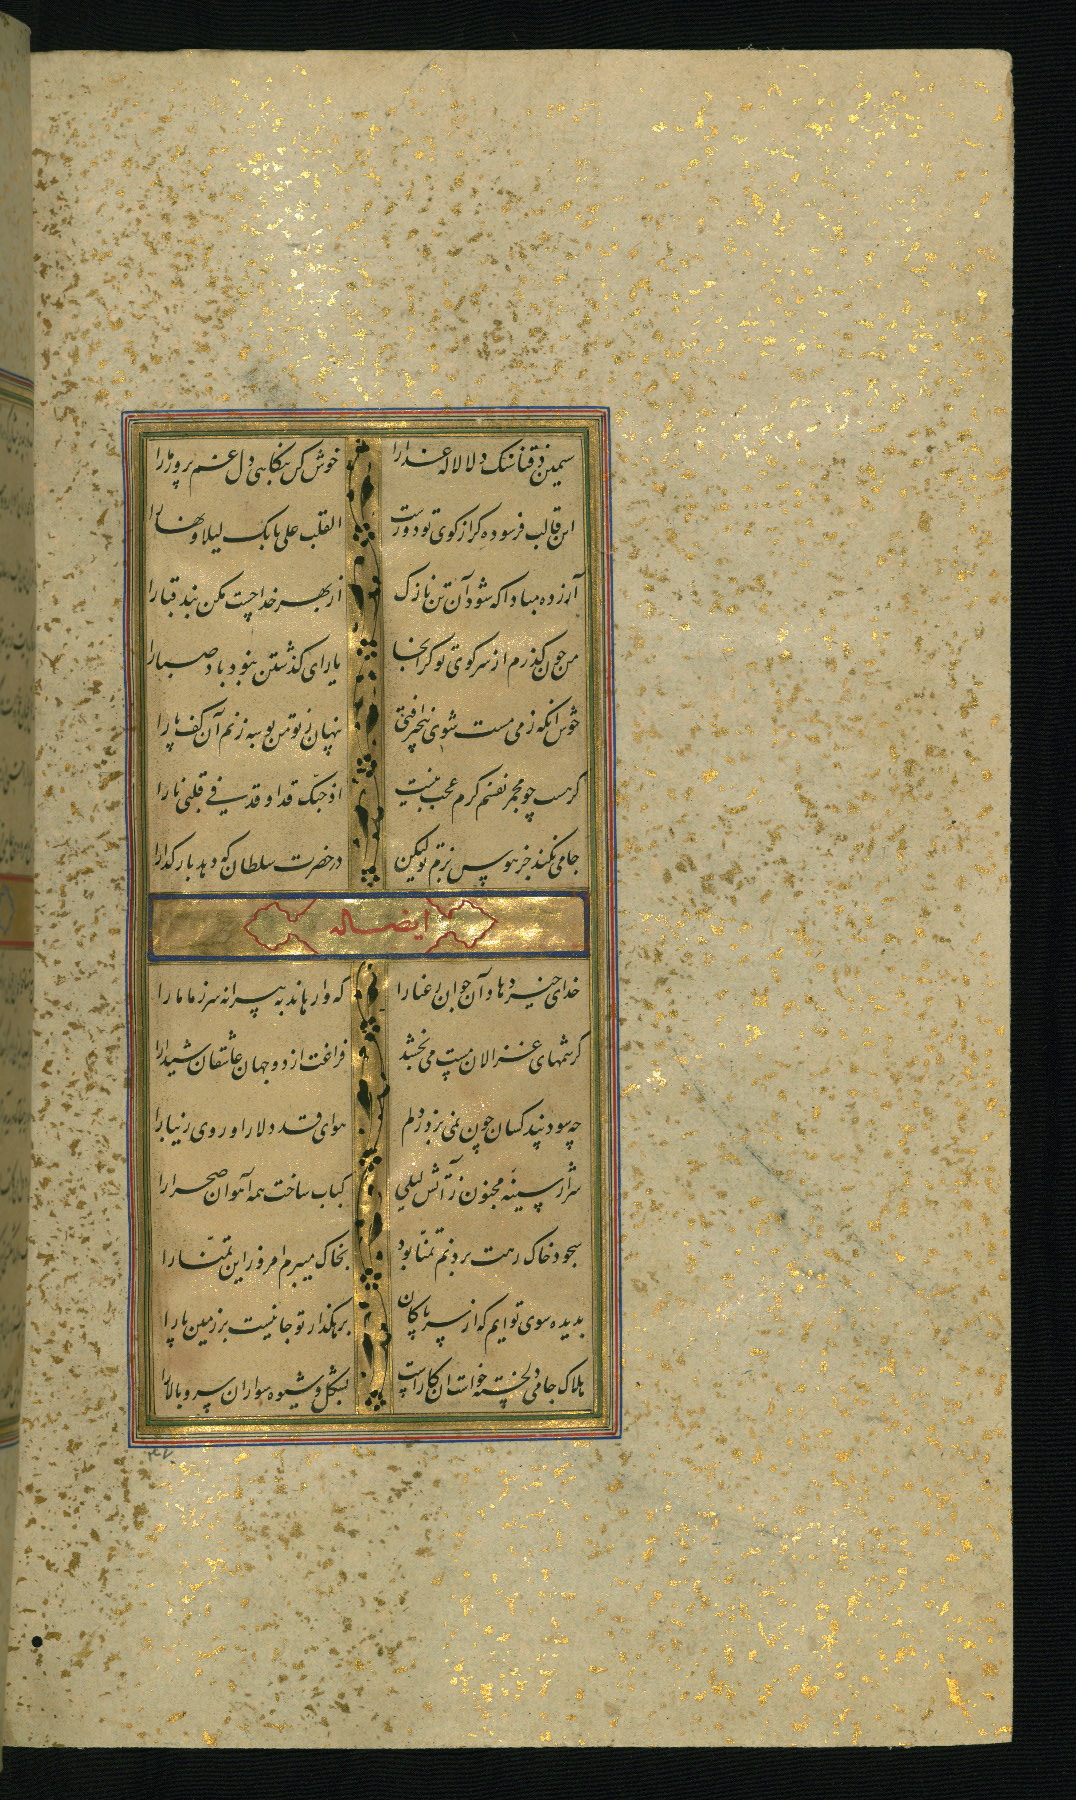 سیمین ذقنا سنک دلا لاله عذارا خوش کن بنکاهی دل غم پرور ما را
این قالب فرسوده کر از کوی تو دورست القلب علی بابک لیلا و نهارا
آزرده مبادا که شود آن تن نازک از بهر خدا چست مکن بند قبا را
من چون کذرم از سر کوی تو کز آنجا یارای کذشتن نبود باد صبا را
خوش آنکه ز می مست شوی بیخبر افتی پنهان ز تو من بوسه زنم آن کف پا را
کر هست چو مجمر نفسم کرم عجب نیست اذ حبک قد اوقد فی قلبی نارا
جامی نکند جز هوس بزم تو لیکن در حضرت سلطان که دهد بار کدا را
ایضا له
خدای خیر دهاد آن جوان رعنا را که وارهاند به پیرانه سر ز ما ما را
کرشمهای غزالان مست می‌بخشد فراغت از دو جهان عاشقان شیدا را
چه سود پند کسان چون نمی برد ز دلم هوای قد دلارا و روی زیبا را
شرار سینه مجنون ز آتش لیلی کباب ساخت همه آهوان صحرا را
سجود خاک رهت بردنم تمنا بود بخاک میبرم امروز این تمنا را
بدیده سوی تو ایم که از سر پاکان برهکذار تو جا نیست بر زمین پا را
هلاک جامی دلخسته خواست آن کاراست بشکل و شیوه سواران سرو بالا را